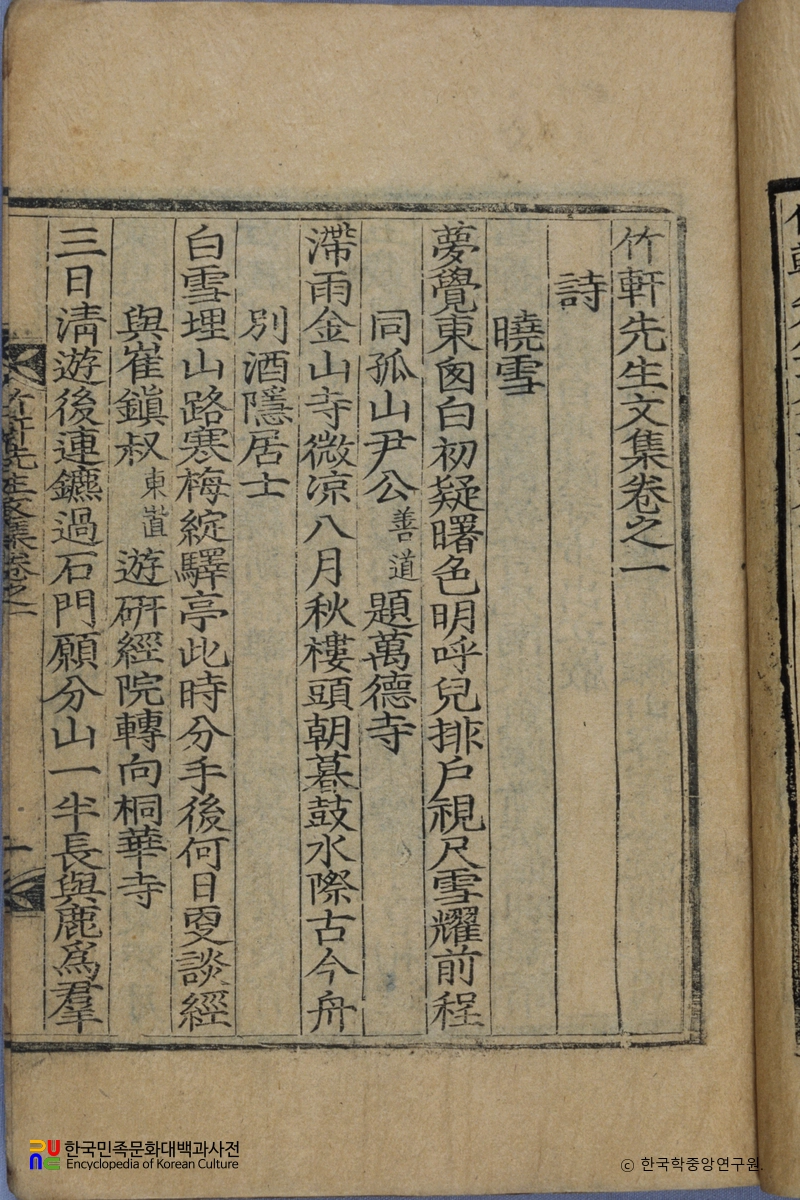 竹軒先生文集卷之一
詩
曉雪
夢覺東囱白初疑曙色明呼兒排戶視尺雪耀前程
同孤山尹公善道題萬德寺
滯雨金山寺微凉八月秋樓頭朝暮鼓水際古今舟
別酒隱居士
白雪埋山路寒梅綻驛亭此時分手後何日更談經
與崔鎭叔東㠍遊硏經院轉向桐華寺
三日淸遊後連鑣過石門願分山一半長與鹿爲羣
竹軒先生文集卷之一
한국민족문화대백과사전
Encyclopedia of Korean Culture
© 한국학중앙연구원.